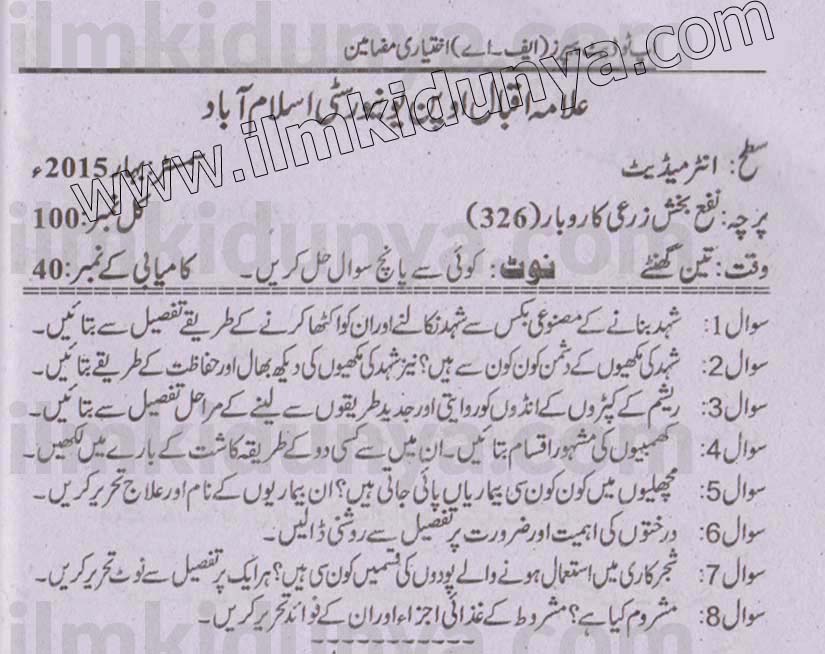 اختیاری مضامین (ایف۔اے)
علامہ اقبال اوپن یونیورسٹی اسلام آباد
سطح: انٹرمیڈیٹ سمسٹر بہار 2015ء
پرچہ: نفع بخش زرعی کاروبار (326) کل نمبر: 100
وقت: تین گھنٹے نوٹ: کوئی سے پانچ سوال حل کریں۔ کامیابی کے نمبر: 40
سوال 1: شہد بنانے کے مصنوعی بکس سے شہد نکالنے اور ان کو اکٹھا کرنے کے طریقے تفصیل سے بتائیں۔
سوال 2: شہد کی مکھیوں کے دشمن کون کون سے ہیں؟ نیز شہد کی مکھیوں کی دیکھ بھال اور حفاظت کے طریقے بتائیں۔
سوال 3: ریشم کے کیڑوں کے انڈوں کو روایتی اور جدید طریقوں سے لینے کے مراحل تفصیل سے بتائیں۔
سوال 4: کھمبیوں کی مشہور اقسام بتائیں۔ ان میں سے کسی دو کے طریقہ کاشت کے بارے میں لکھیں۔
سوال 5: مچھلیوں میں کون کون سی بیماریاں پائی جاتی ہیں؟ ان بیماریوں کے نام اور علاج تحریر کریں۔
سوال 6: درختوں کی اہمیت اور ضرورت پر تفصیل سے روشنی ڈالیں۔
سوال 7: شجر کاری میں استعمال ہونے والے پودوں کی قسمیں کون سی ہیں؟ ہر ایک پر تفصیل سے نوٹ تحریر کریں۔
سوال 8: مشروم کیا ہے؟ مشروط کے غذائی اجزاء اور ان کے فوائد تحریر کریں۔
www.ilmkidunya.com
ilmkidunya.com
ilmkidunya.com
ilmkidunya.com
ilmkidunya.com